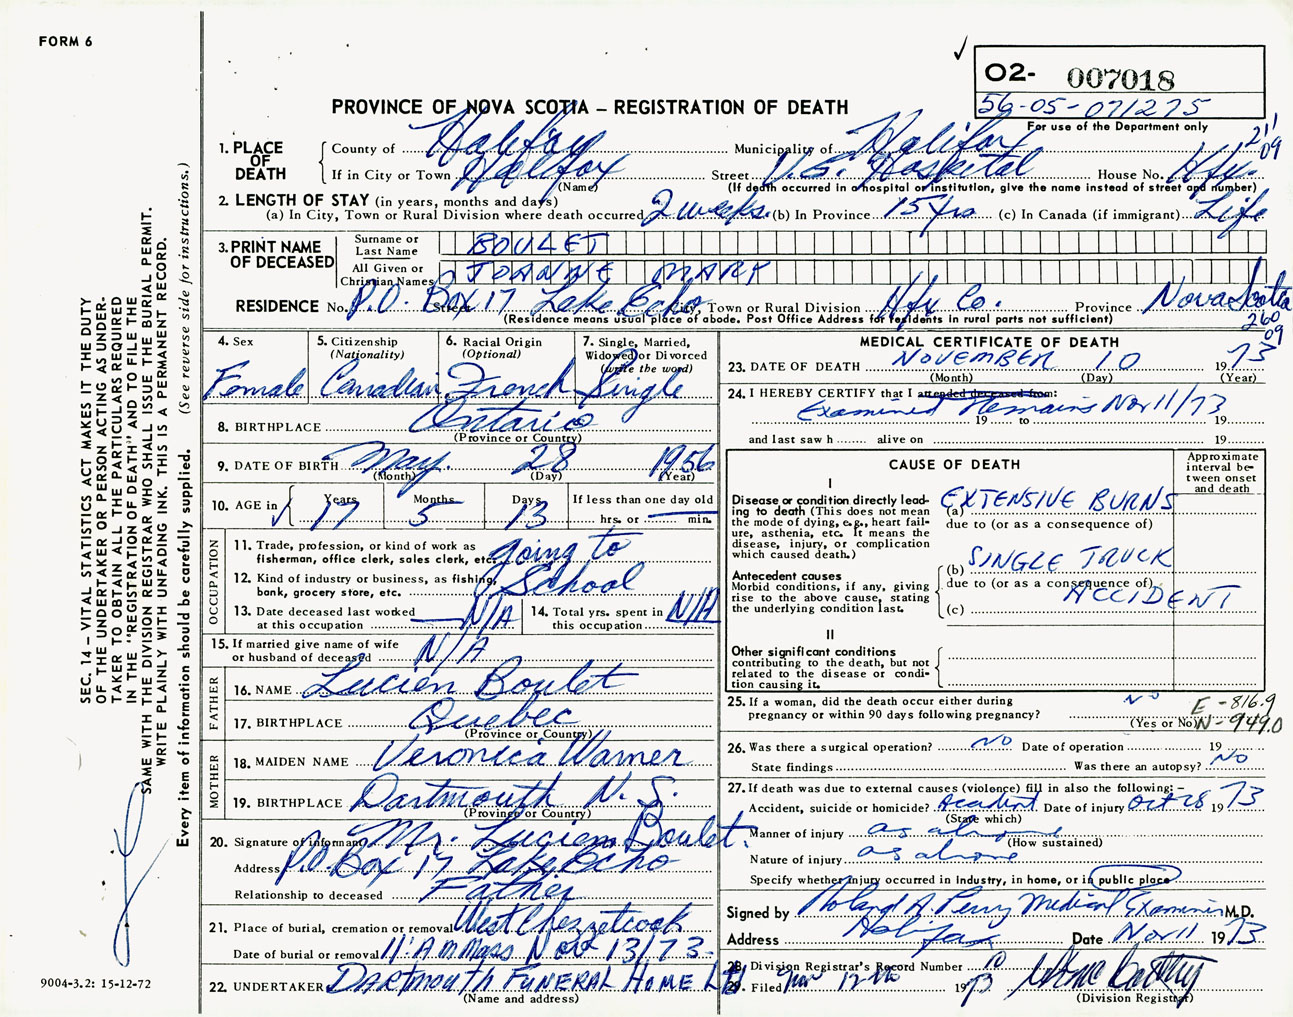 FORM 6
O2- 007018
56-05-071275
For use of the Department only
PROVINCE OF NOVA SCOTIA – REGISTRATION OF DEATH
211
09
1. PLACE OF DEATH
County of Halifax Municipality of Halifax
If in City or Town Halifax Street V.G. Hospital House No. Hfx.
(Name) (If death occurred in a hospital or institution, give the name instead of street and number)
2. LENGTH OF STAY (in years, months and days)
(a) In City, Town or Rural Division where death occurred 2 weeks. (b) In Province 15 yrs (c) In Canada (if immigrant) Life
3. PRINT NAME OF DECEASED
Surname or Last Name BOULET
All Given or Christian Names JOANNE MARY
RESIDENCE No. P.O. Box 17 Street Lake Echo City, Town or Rural Division Hfx Co. Province Nova Scotia
(Residence means usual place of abode. Post Office Address for residents in rural parts not sufficient)
260
09
4. Sex Female
5. Citizenship (Nationality) Canadian
6. Racial Origin (Optional) French
7. Single, Married, Widowed or Divorced (write the word) Single
8. BIRTHPLACE Ontario
(Province or Country)
9. DATE OF BIRTH May. 28 1956
(Month) (Day) (Year)
10. AGE in Years 17 Months 5 Days 13 If less than one day old
hrs. or min.
OCCUPATION
11. Trade, profession, or kind of work as fisherman, office clerk, sales clerk, etc. going to
12. Kind of industry or business, as fishing, bank, grocery store, etc. School
13. Date deceased last worked at this occupation N/A
14. Total yrs. spent in this occupation N/A
15. If married give name of wife or husband of deceased N/A
FATHER
16. NAME Lucien Boulet
17. BIRTHPLACE Quebec
(Province or Country)
MOTHER
18. MAIDEN NAME Veronica Warner
19. BIRTHPLACE Dartmouth N.S.
(Province or Country)
20. Signature of informant Mr. Lucien Boulet.
Address P.O. Box 17 Lake Echo
Relationship to deceased Father
21. Place of burial, cremation or removal West Chezzetcook
Date of burial or removal 11 Am Mass Nov 13/73
22. UNDERTAKER DARTMOUTH FUNERAL HOME Ltd
(Name and address)
MEDICAL CERTIFICATE OF DEATH
23. DATE OF DEATH NOVEMBER 10 1973
(Month) (Day) (Year)
24. I HEREBY CERTIFY that I attended deceased from:
Examined Remains Nov 11/73
19 to 19
and last saw h alive on 19
CAUSE OF DEATH
Approximate interval between onset and death
I
Disease or condition directly leading to death (This does not mean the mode of dying, e.g., heart failure, asthenia, etc. It means the disease, injury, or complication which caused death.)
(a) EXTENSIVE BURNS
due to (or as a consequence of)
Antecedent causes
Morbid conditions, if any, giving rise to the above cause, stating the underlying condition last.
(b) SINGLE TRUCK
due to (or as a consequence of)
ACCIDENT
(c)
II
Other significant conditions
contributing to the death, but not related to the disease or condition causing it.
25. If a woman, did the death occur either during pregnancy or within 90 days following pregnancy? No
(Yes or No)
E-816.9
N-949.0
26. Was there a surgical operation? No Date of operation 19
State findings Was there an autopsy? No
27. If death was due to external causes (violence) fill in also the following:-
Accident, suicide or homicide? Accident Date of injury Oct 28 1973
(State which)
Manner of injury as above (How sustained)
Nature of injury as above
Specify whether injury occurred in industry, in home, or in public place
Signed by Roland A. Perry Medical Examiner M.D.
Address Halifax Date Nov 11 1973
28. Division Registrar's Record Number
29. Filed Nov 12th 1973
(Division Registrar)
SEC. 14 – VITAL STATISTICS ACT MAKES IT THE DUTY
OF THE UNDERTAKER OR PERSON ACTING AS UNDER-
TAKER TO OBTAIN ALL THE PARTICULARS REQUIRED
IN THE "REGISTRATION OF DEATH" AND TO FILE THE
SAME WITH THE DIVISION REGISTRAR WHO SHALL ISSUE THE BURIAL PERMIT.
WRITE PLAINLY WITH UNFADING INK. THIS IS A PERMANENT RECORD.
Every item of information should be carefully supplied. (See reverse side for instructions.)
9004-3.2: 15-12-72